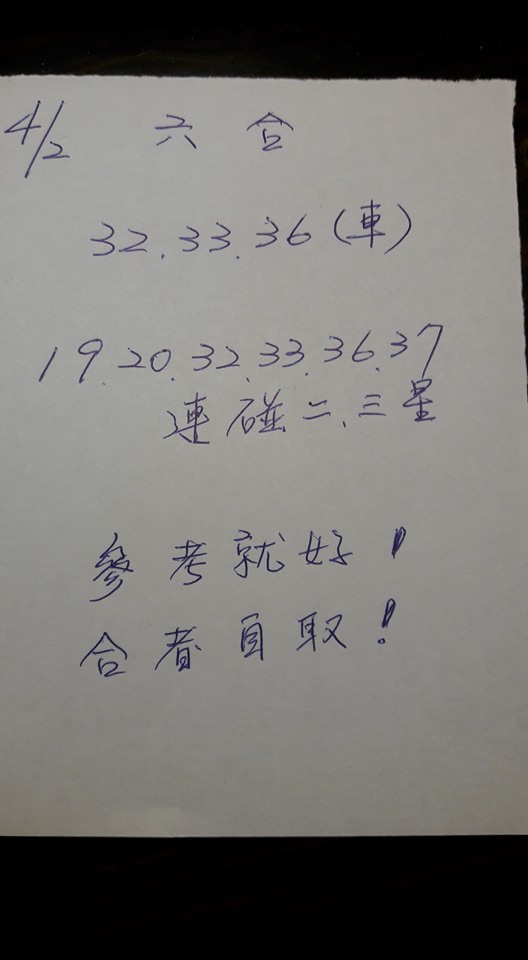 4/2 六合
32.33.36(車)
19.20.32.33.36.37
連碰二、三星
參考就好!
合者自取!